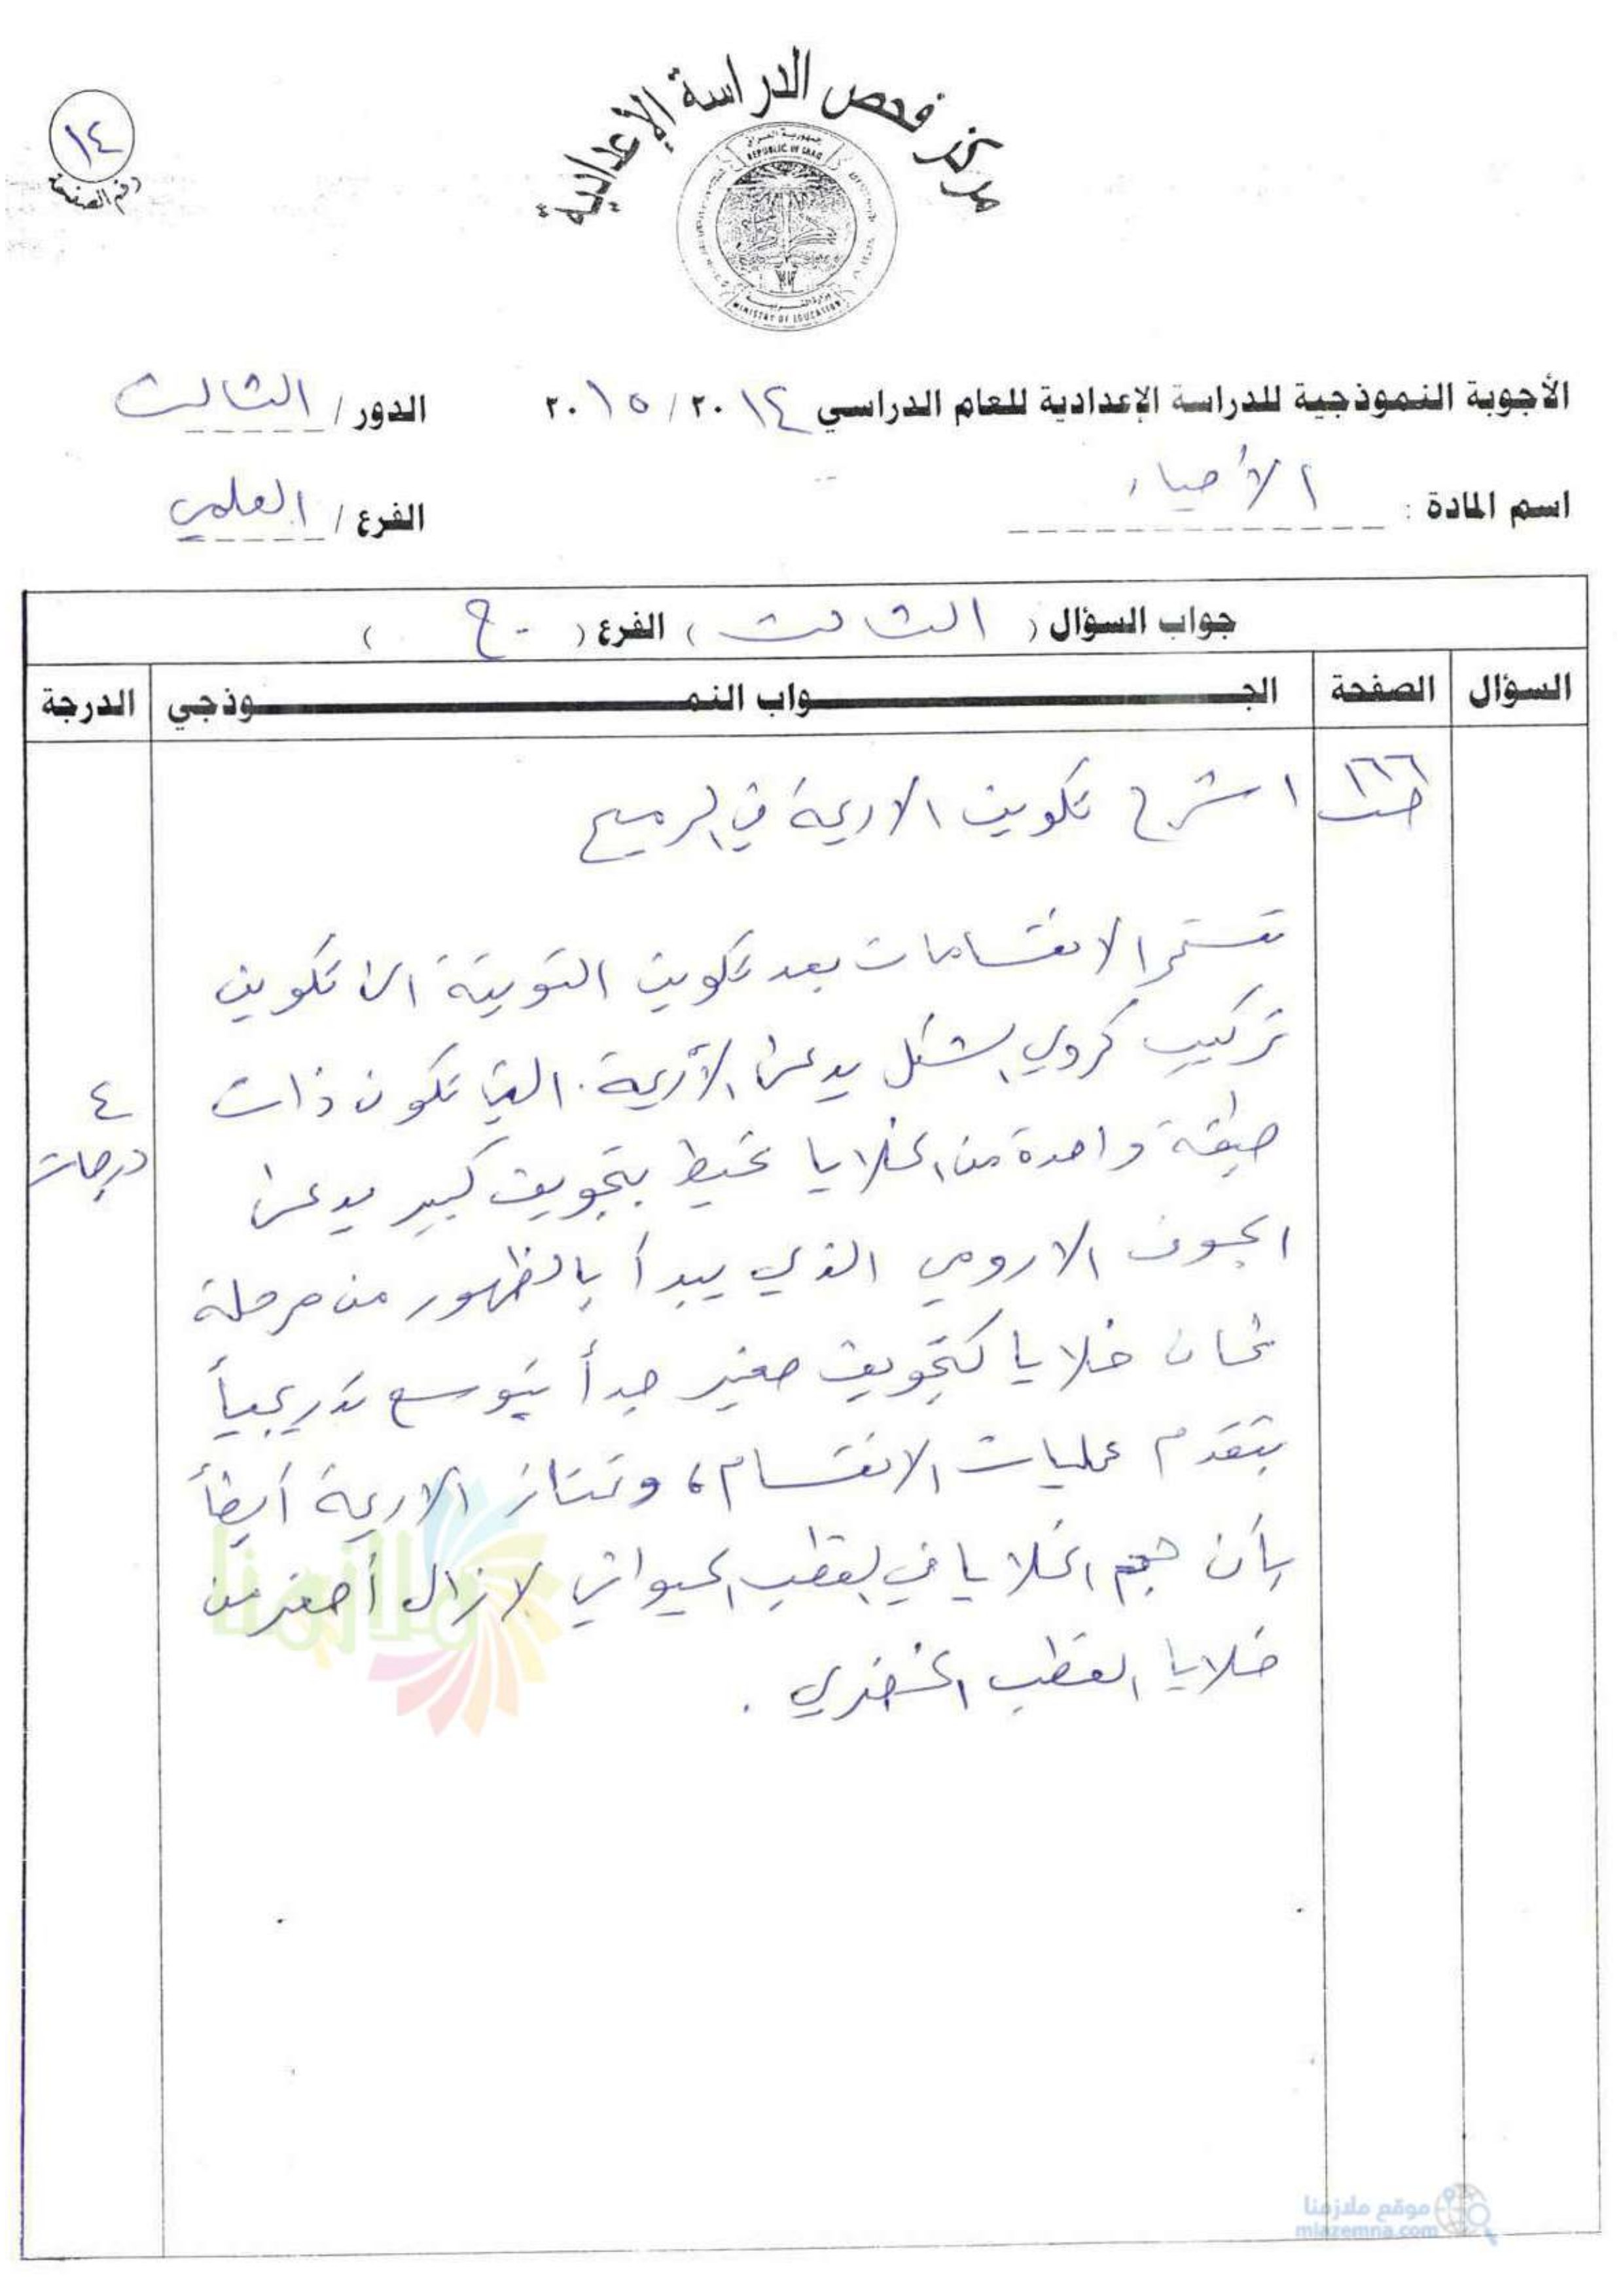 مركز فحص الدراسة الإعدادية
جمهورية العراق
REPUBLIC OF IRAQ
وزارة التربية
MINISTRY OF EDUCATION
١٤
رقم الصفحة
الأجوبة النموذجية للدراسة الإعدادية للعام الدراسي ٢٠١٤ / ٢٠١٥ الدور / الثالث
اسم المادة : الأحياء الفرع / العلمي
جواب السؤال ( الثالث ) الفرع ( ح )
السؤال الصفحة الجـــواب النمـــوذجي الدرجة
١٦٦ اشرح تكوين الاريمة في الرميح
تستمر الانقسامات بعد تكوين التويتة الى تكوين
تركيب كروي الشكل يدعى الأريمة. التي تكون ذات
طبقة واحدة من الخلايا تحيط بتجويف كبير يدعى
الجوف الارومي الذي يبدأ بالظهور من مرحلة
ثمان خلايا كتجويف صغير جداً يتوسع تدريجياً
بتقدم عمليات الانقسام، وتمتاز الاريمة أيضاً
بأن حجم الخلايا في القطب الحيواني لازال أصغر من
خلايا القطب الخضري .
٤
درجات
ملازمنا
موقع ملازمنا
mlazemna.com